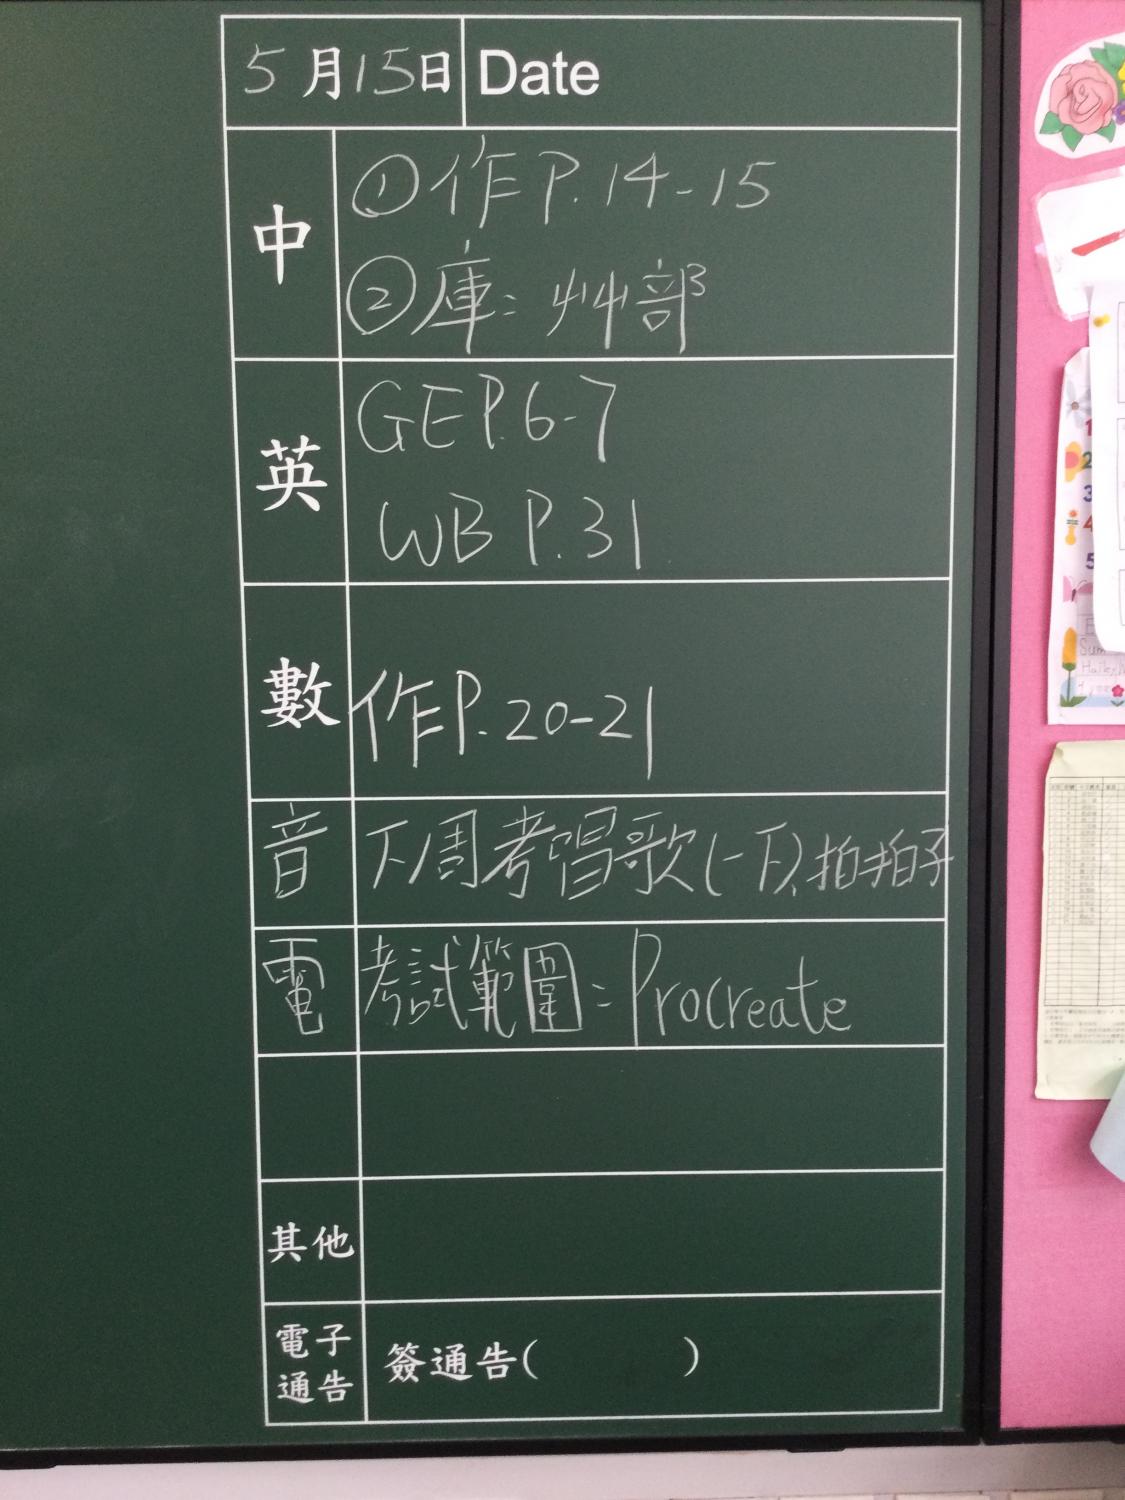 5月15日 Date
中
①作P.14-15
②庫：艸部
英
GE P.6-7
WB P.31
數
作P.20-21
音 下周考唱歌(一下)、拍拍子
電 考試範圍：Procreate
其他
電子
通告
簽通告( )